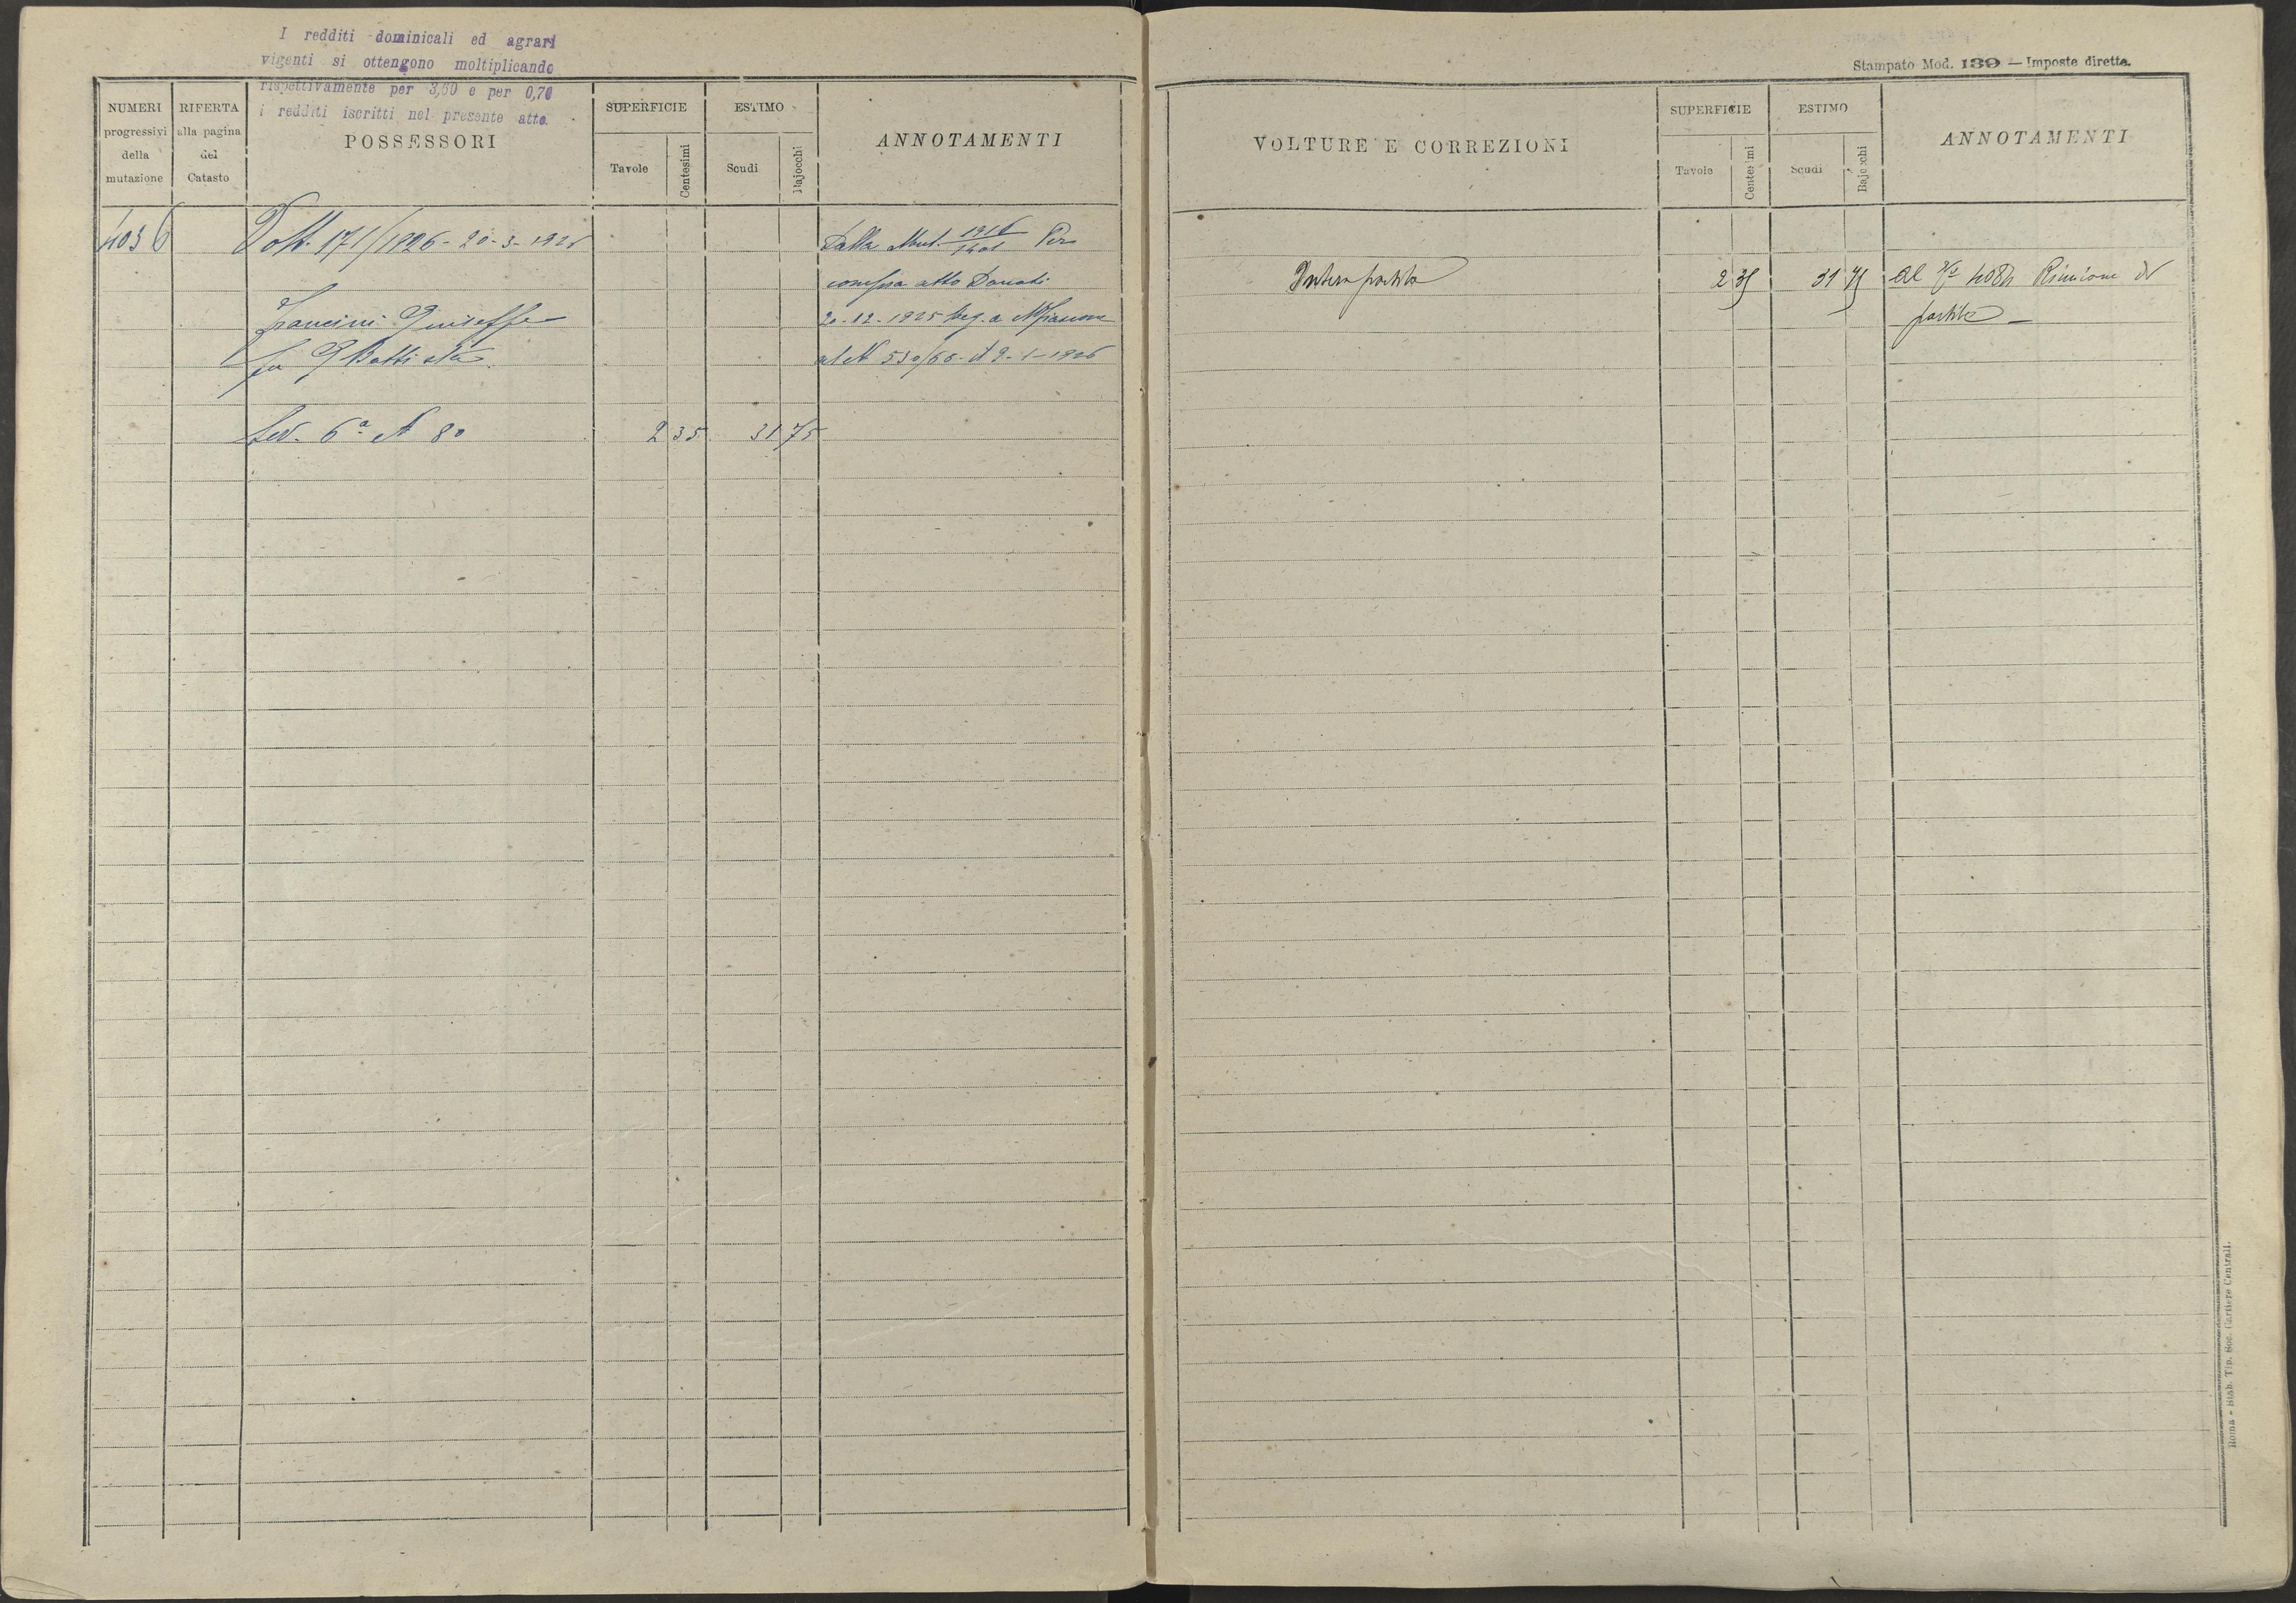 I redditi dominicali ed agrari
vigenti si ottengono moltiplicando
rispettivamente per 3,60 e per 0,70
i redditi iscritti nel presente atto.
NUMERI
progressivi
della
mutazione
RIFERTA
alla pagina
del
Catasto
POSSESSORI
SUPERFICIE
Tavole
Centesimi
ESTIMO
Scudi
Bajocchi
ANNOTAMENTI
4036
Volt. 171/1926 - 20-3-1926
Francini Giuseppe
fu G Battista
Sez. 6ª N 80
2 35
31 75
Dalla Mut. Per
compra atto Donati
20-12-1925 Reg. a
al N 530/66 - il 9-1-1926
Stampato Mod. 139 — Imposte dirette.
VOLTURE E CORREZIONI
SUPERFICIE
Tavole
Centesimi
ESTIMO
Scudi
Bajocchi
ANNOTAMENTI
Intera partita
2 35
31 75
Al N° 4084 Riunione di
partite
Roma - Stab. Tip. Soc. Cartiere Centrali.